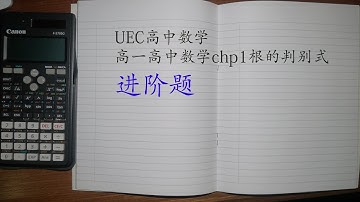 Canon
UEC高中数学
高一高中数学chp1根的判别式
进阶题